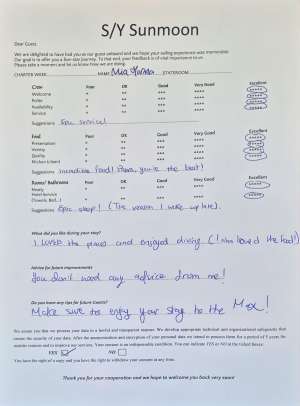 S/Y Sunmoon
Dear Guest,
We are delighted to have had you as our guest onboard and we hope your sailing experience was memorable.
Our goal is to offer you a five-star journey. To that end, your feedback is of vital importance to us.
Please take a moment and let us know how we are doing.
CHARTER WEEK NAME Mia STATEROOM
Crew Poor OK Good Very Good Excellent
Welcome * ** *** **** *****
Polite * ** *** **** *****
Availability * ** *** **** *****
Service * ** *** **** *****
Suggestions Epic service!
Food Poor OK Good Very Good Excellent
Presentation * ** *** **** *****
Variety * ** *** **** *****
Quality * ** *** **** *****
* ** *** **** *****
Suggestions Incredible food! you're the best!
Rooms/ Bathrooms Poor OK Good Very Good Excellent
* ** *** **** *****
Hotel Service * ** *** **** *****
Suggestions Epic sleep! (The reason I woke up late).
What did you like during your stay?
I loved the places and enjoyed diving (I also loved the food!)
Advice for future improvements
You don't need any advice from me!
Do you have any tips for future Guests?
Make sure to enjoy your stay to the Max!
We assure you that we process your data in a lawful and transparent manner. We develop appropriate technical and organizational safeguards that
ensure the security of your data. After the anonymization and encryption of your personal data we intend to process them for a period of 5 years
YES NO
You have the right of a copy and you have the right to withdraw your consent at any time.
Thank you for your cooperation and we hope to welcome you back very soon!